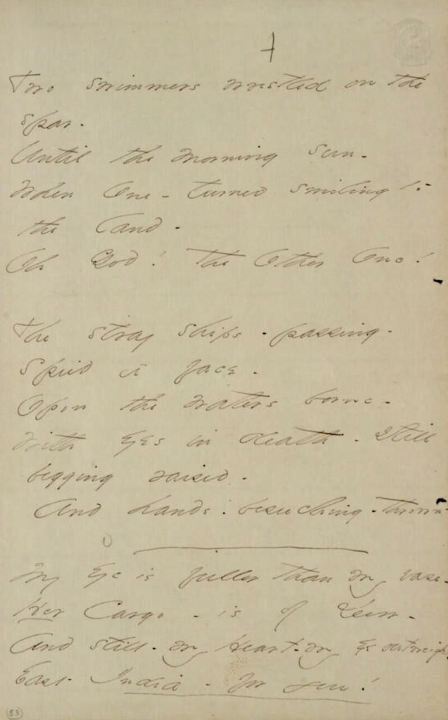 Two swimmers wrestled on the
spar -
Until the morning sun -
When One - turned smiling to
the land -
Oh God! The Other One!
The stray ships - passing -
Spied a face -
Upon the waters borne -
With eyes in death - still
begging raised -
And hands - beseeching - thrown
My Eye is fuller than my vase -
Her Cargo - is of Dew -
And still - my Heart - my Eye outweighs
East India - for you!
83